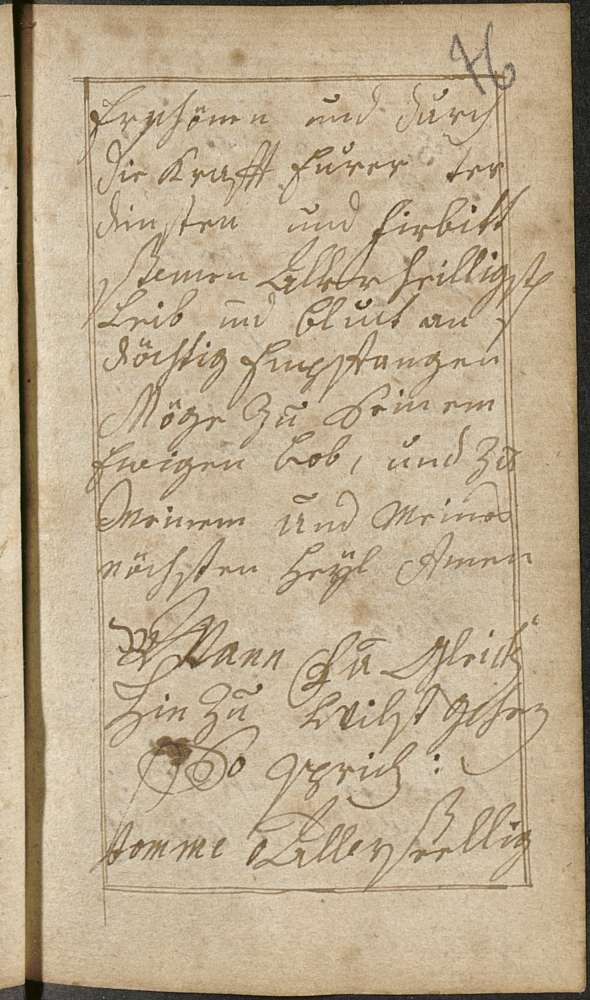 76
Erschönen und durch
die Krafft Eurer ver
dinsten und firbitt
deinen Aller heilligst
Leib und bluet an
dächtig Empffangen
Möge zu deinem
Ewigen Lob, und zu
Meinem und Meines
nächsten Heÿl Amen
Wann du Gleich
hin zu wilst gehen
So sprich:
komme o Allerheillig